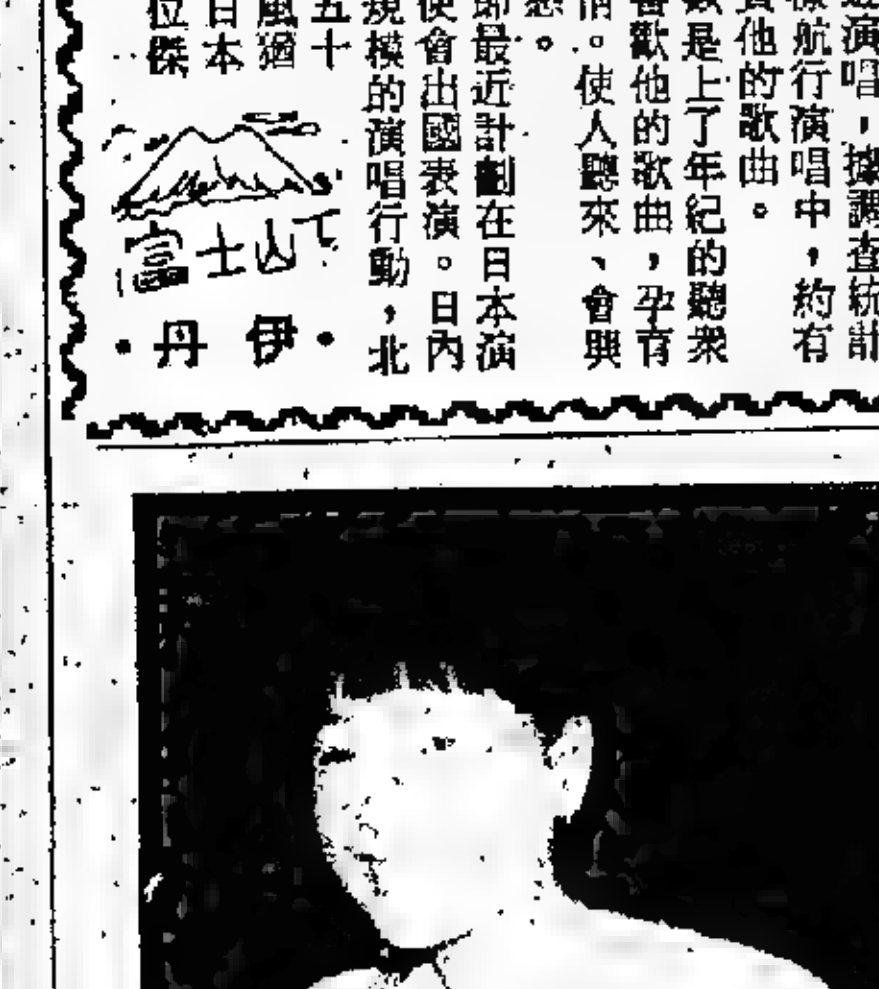 演唱，據調查統計
航行演唱中，約有
他的歌曲。
是上了年紀的聽衆
歡他的歌曲，孕育
。使人聽來、會興
。
最近計劃在日本演
便會出國表演。日內
規模的演唱行動，北
五十
風猶
日本
位傑
富士山下
・伊丹・